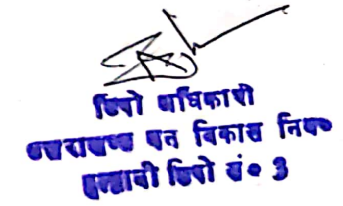 डिपो अधिकारी
उत्तराखण्ड वन विकास निग०
हल्द्वानी डिपो सं० 3